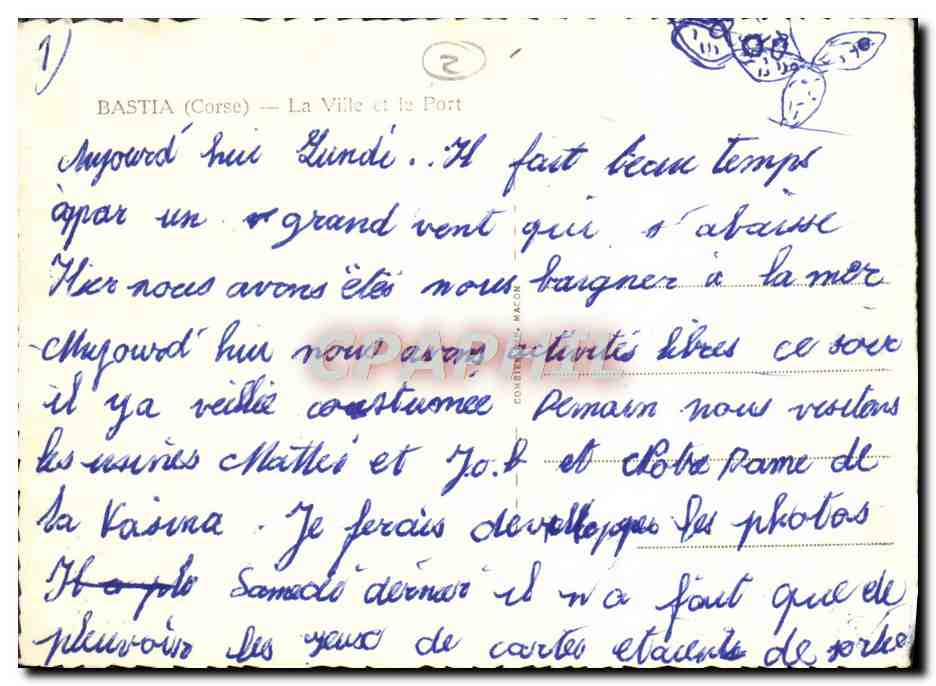 1)
2
BASTIA (Corse) — La Ville et le Port
Aujourd'hui Lundi.. Il fait beau temps
àpar un grand vent qui s'abaisse
Hier nous avons étés nous baigner à la mer
Aujourd'hui nous avons activités libres ce soir
il y a veillée coustumée Demain nous visitons
les usines Mattei et Jo.b et Notre Dame de
la Vasina. Je ferais developper les photos
Il a plu Samedi dernier il n'a fait que de
pleuvoir les jeux de cartes etaient de sortie
COMBIER IMP. MACON
CPAPHIL